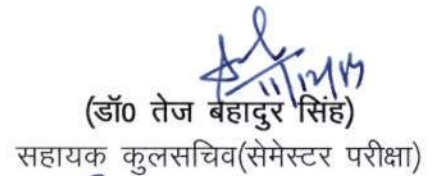 11/12/19
(डॉ0 तेज बहादुर सिंह)
सहायक कुलसचिव(सेमेस्टर परीक्षा)